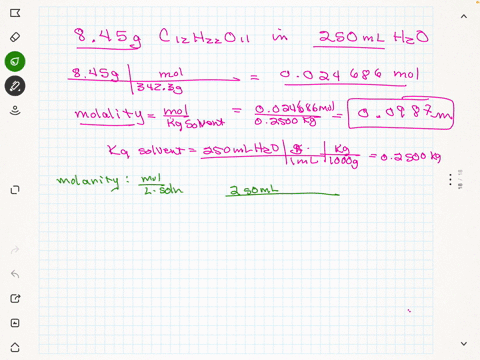 8.45g C12H22O11 in 250mL H2O
8.45g | mol / 342.3g = 0.024686 mol
molality = mol / Kg solvent = 0.024686mol / 0.2500 kg = 0.0987m
Kg solvent = 250mL H2O | g | kg / 1mL | 1000g = 0.2500 kg
molarity: mol / L. soln 250mL